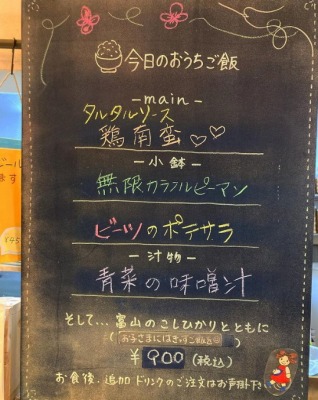 今日のおうちご飯
-main-
タルタルソース
鶏南蛮♡♡
-小鉢-
無限カラフルピーマン
ビーツのポテサラ
-汁物-
青菜の味噌汁
そして...富山のこしひかりとともに
¥900(税込)
お食後、追加ドリンクのご注文はお声掛け下さい